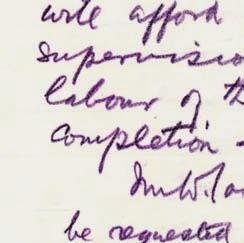 will afford
supervisio
labour of th
completion -
be requested